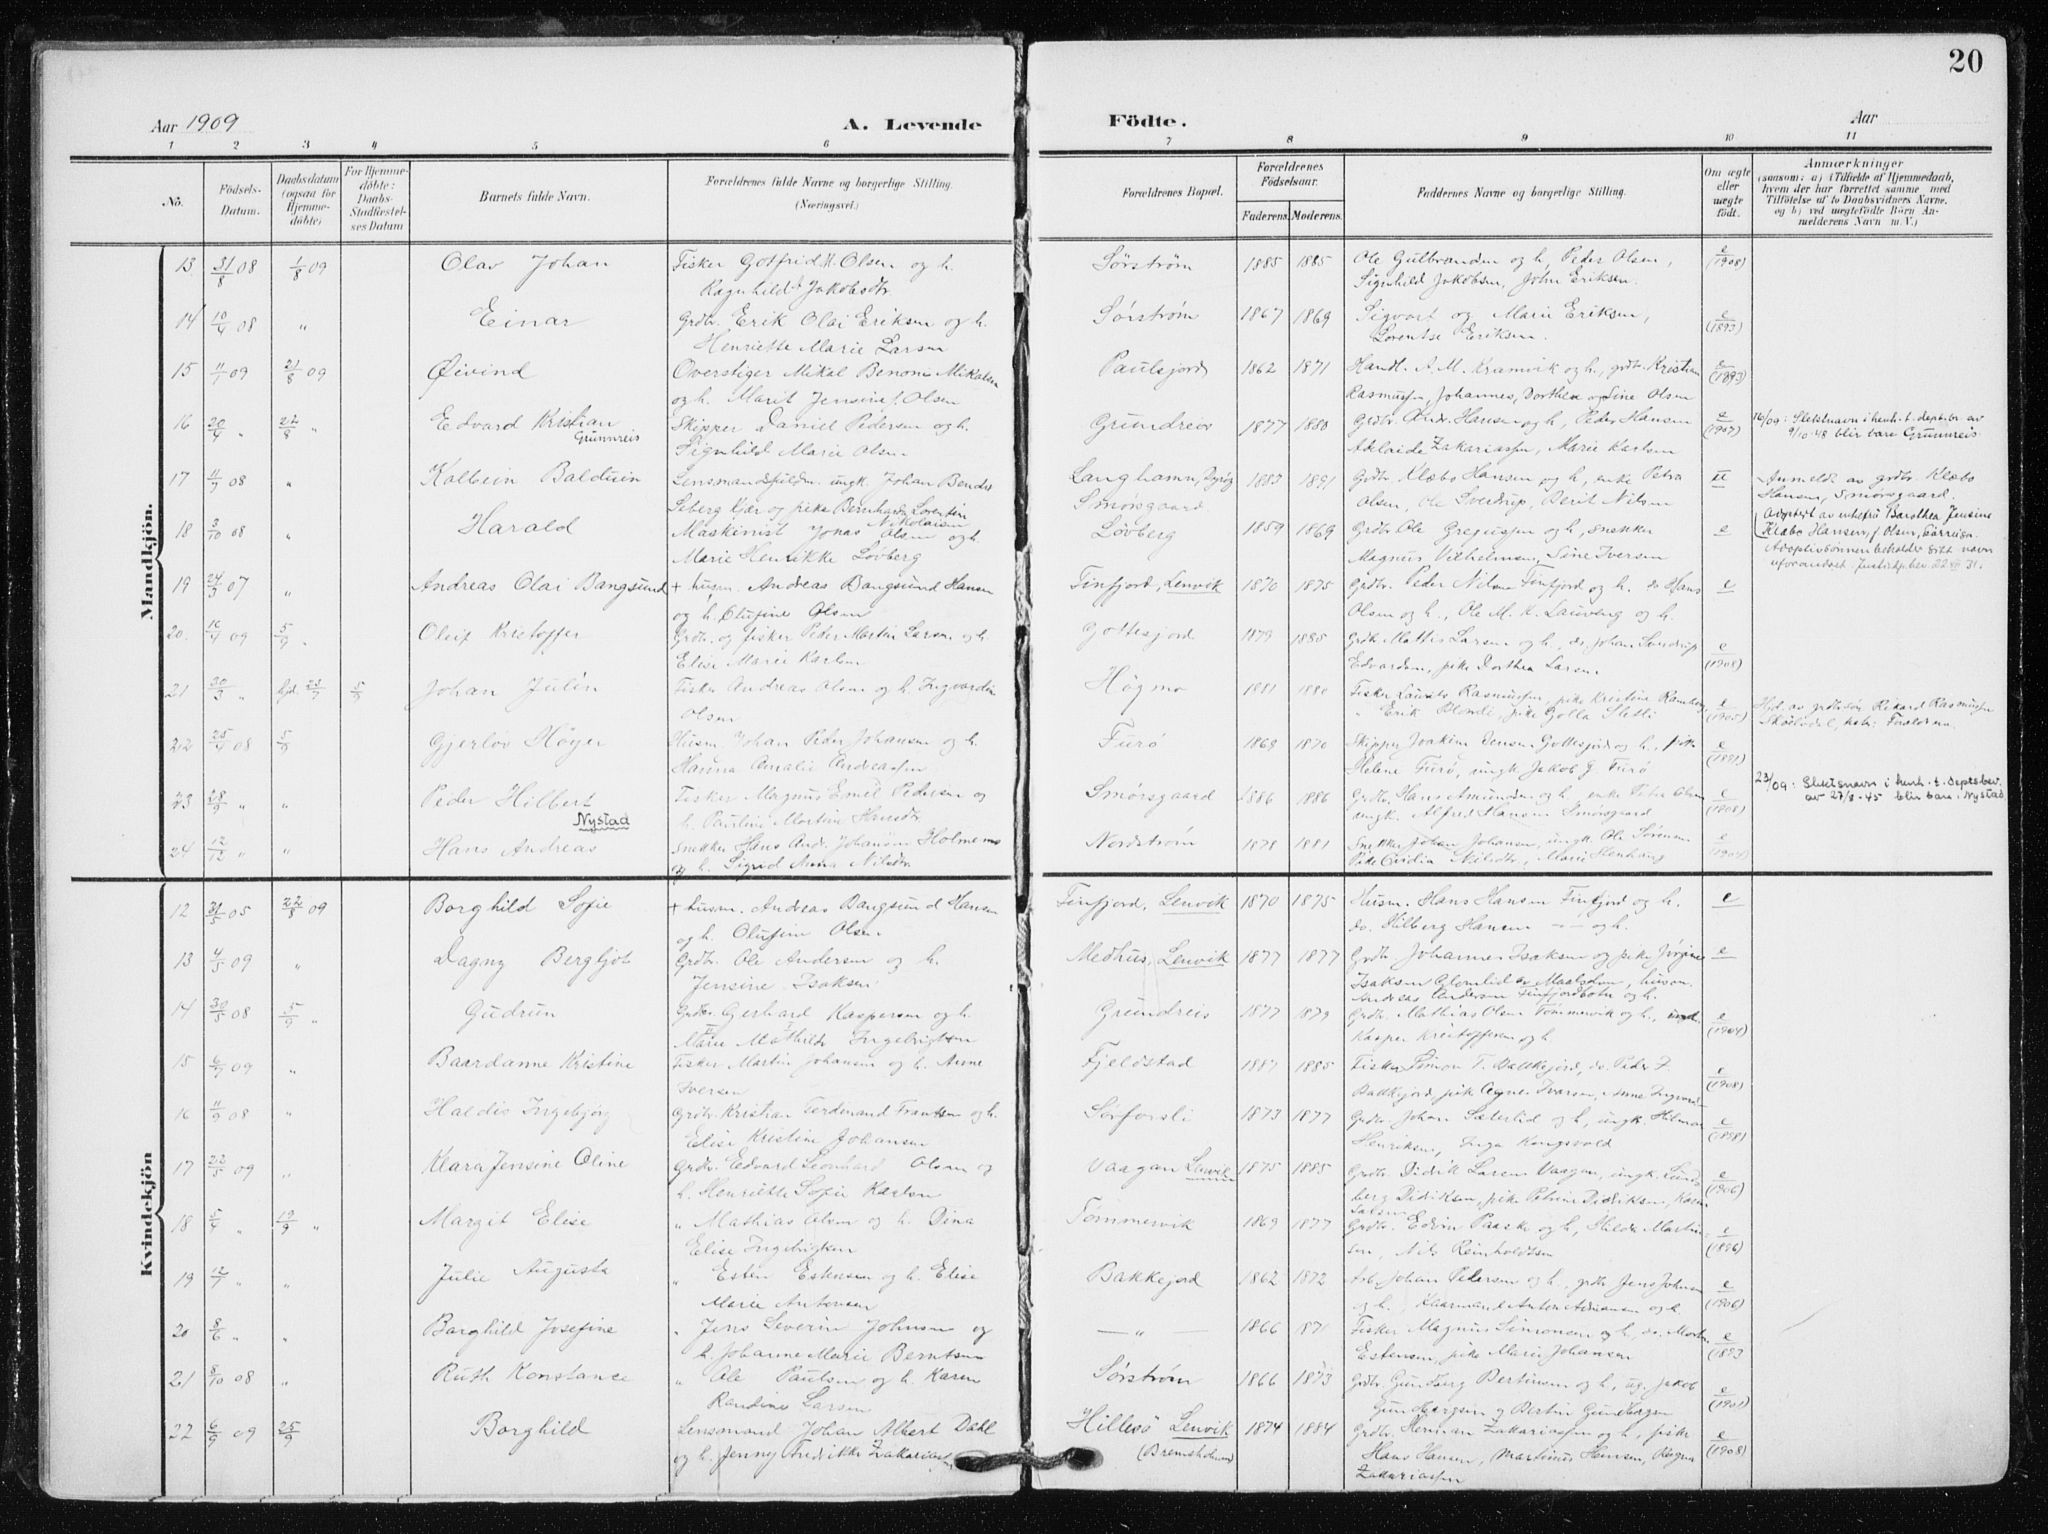 20
Aar 1909
A. Levende
Födte.
Aar
1 2 3 4 5 6 7 8 9 10 11
No.
Födsels-Datum.
Daabsdatum (ogsaa for Hjemme-döbte)
For Hjemme-döbte: Daabs-Stadfæstelses Datum
Barnets fulde Navn.
Forældrenes fulde Navne og borgerlige Stilling.
(Næringsvei.)
Forældrenes Bopæl.
Forældrenes Födselsaar.
Faderens. Moderens.
Faddernes Navne og borgerlige Stilling.
Om ægte eller uægte födt.
Anmærkninger
(saasom: a) i Tilfælde af Hjemmedaab,
hvem der har forrettet samme med
Tilföielse af to Daabsvidners Navne.
og b) ved uægtefödte Börn An-
melderens Navn m.V.)
Mandkjön.
13 31/8 08 1/8 09 Olav Johan Fisker Gotfrid M. Olsen og h. Sørstrøm 1885 1885 Ole Gulbrandsen og h, Peder Olsen, e
Ragnhild Jakobsdtr. Signhild Jakobsen, John Eriksen. (1908)
14 10/4 08 " Einar Grdbr. Erik Olai Eriksen og h. Sørstrøm 1867 1869 Sigvart og Marie Eriksen, e
Henriette Marie Larsen Lorentse Eriksen. (1893)
15 11/1 09 21/8 09 Øivind Overstiger Mikal Benoni Mikalsen Paulsjord 1862 1871 Handl. A. M. Kramvik og h, grdbr. Kristian e
og h. Marit Jensine f. Olsen Rasmussen, Johannes, Dorthea og Sine Olsen (1893)
16 20/4 " 22/8 " Edvard Kristian Skipper Daniel Pedersen og h. Grundreis 1877 1880 Grdbr. Andr. Hansen og h, Peder Hansen e 16/09: Slektsnavn i henh. t. dept.br. av
Grunnreis Signhild Marie Olsen Adelaide Zakariassen, Marie Karlsen (1907) 9/10-48 blir bare Grunnreis.
17 11/7 08 " Kolbein Balduin Lensmandsfuldm. ungk. Johan Bendix Langhamn, Dyrøy 1883 1891 Grdbr. Klæbo Hansen og h, enke Petra u Anmeldt av grdbr. Klæbo
Seberg Kjær og pike Bernharda Lorentine Nikolaisen Smörsgaard Olsen, Ole Sverdrup, Berit Nilsen Hansen, Smörsgaard.
18 3/10 08 " Harald Maskinist Jonas Olsen og h. Løvberg 1859 1869 Grdbr. Ole Gregussen og h, snekker e Adoptert av enkefru Barothea Jensine
Marie Henrikke Lövberg Magnus Vilhelmsen, Sine Iversen Klæbo Hansen, f. Olsen, Sörreisa.
Adoptivsönnen beholder sitt navn
uforandret. Justisdp.bev. 22 VII 31.
19 24/3 07 " Andreas Olai Bangsund + husm. Andreas Bangsund Hansen Finfjord, Lenvik 1870 1875 Grdbr. Peder Nilsen Finfjord og h. do Hans e
og h. Olufine Olsen Olsen og h., Ole M. K. Lauveng og h.
20. 16/4 09 5/9 " Oleif Kristoffer Grdbr. og fisker Peder Martin Larsen og h. Gottesjord 1879 1885 Grdbr. Mattis Larsen og h, do. Johan Sverdrup e
Elise Marie Karlsen Edvardsen, pike Dorthea Larsen (1908)
21 20/3 " hjd. 23/7 5/9 Johan Julin Fisker Andreas Olsen og h. Ingvardine Högmo 1881 1880 Fisker Laurits Rasmussen, pike Kristine Ramberg, e
Olsen " Erik Blondi, pike Golla Sletli (1905) Skatvedel, bekr. Forældrene.
22 25/4 08 5/9 Gjerlöv Höyer Husm. Johan Peder Johansen og h. Furö 1869 1870 Skipper Joakim Jensen Gottesjord og h, pike e
Hanna Amalie Andreassen Helene Furö, ungk. Jakob J. Furö (1891)
23 28/9 " " Peder Hilbert Fisker Magnus Emil Pedersen og Smörsgaard 1886 1886 Grdbr. Hans Amundsen og h, enke Petra Olsen e 23/09: Slektsnavn i henh. t. deptsbev.
Nystad h. Pauline Martine Hansdtr. ungk. Alfred Hansen Smörsgaard (1908) av 27/8-45 blir bare: Nystad
24 12/12 " " Hans Andreas Snekker Hans Andr. Johansen Holmenes Nordström 1878 1881 Snekker Johan Johansen, ungk. Ole Sørensen e
og h. Sigrid Anna Nilsdtr. Pike Cecilia Nilsdtr, Marie Stenhaug (1904)
Kvindekjön
12 31/5 05 22/8 09 Borghild Sofie + husm. Andreas Bangsund Hansen Finfjord, Lenvik 1870 1875 Husm. Hans Hansen Finfjord og h. e
og h. Olufine Olsen do. Hilberg Hansen — " — og h.
13 4/5 09 " Dagny Bergljot Grdbr. Ole Andersen og h. Medhus, Lenvik 1877 1877 Grdbr. Johannes Isaksen og pike Jörgine e
Jensine Isaksen Isaksen Glomlid av Maalselven, husm.
Andreas Andersen Finfjordbotn og h.
14 30/5 08 5/9 " Gudrun Grdbr. Gerhard Kaspersen og h. Grundreis 1877 1879 Grdbr. Mathias Olsen Tömmervik og h., e
Marie Mathilde Ingebrigtsen Kasper Kristoffersen og h (1904)
15 6/7 09 " Baardanne Kristine Fisker Martin Johansen og h. Anne Fjeldstad 1887 1885 Fisker Simon T. Balkkejord, do. Peder Z. e
Iversen Bakkejord, pike Agnes Ivarsen, Anna Ingvarda (1908)
16 11/9 08 " Haldis Ingebjörg Grdbr. Kristian Ferdinand Frantsen og h. Sørforsli 1873 1877 Grdbr. Johan Sæterlid og h, ungk. Hilmar e
Elise Kristine Johansen Henriksen, Inga Kongsvold (1898)
17 22/5 09 " Klara Jensine Oline Grdbr. Edvard Leonhard Olsen og Vaagan Lenvik 1875 1885 Grdbr. Didrik Larsen Vaagan, ungk. Lund- e
h. Henriette Sofie Karlsen berg Didiksen, pike Petrine Didriksen, (1906)
18 5/4 " 19/9 " Margit Elise " Mathias Olsen og h. Dina Tömmervik 1869 1877 Grdbr. Edvin Paaske og h, Hilda Martin- e
Elise Ingebrigtsen sen, Nils Reinholdtsen (1896)
19 12/7 " " Julie Augusta " Esten Estensen og h. Elise Bakkejord 1862 1872 Arb. Johan Petersen og h, grdbr. Jens Johnsen e
Marie Antonsen og h, Anton Adriansen og h (1906)
20 8/6 " " Borghild Josefine " Jens Severin Johnsen og — " — 1866 1871 Fisker Magnus Simonsen og h, do. Morten e
h. Johanne Marie Berntsen Estensen, pike Marie Johansen (1893
21 8/10 08 " Ruth Konstance " Ole Paulsen og h. Karen Sörström 1866 1873 Grdbr. Gundberg Bertinsen og h, ug. Jakob e
Randine Larsen Gundbergsen og Bertin Gundbergsen (1901)
22 6/9 09 25/9 Borghild Lensmand Johan Albert Dahl Hillesö Lenvik 1874 1884 Grdbr. Herman Zakariassen og h, pike e
og h. Jenny Fredrikke Zakariassen (Bremsholmen) Hans Hansen, Martinus Hansen, Ragna (1908)
Zakariassen